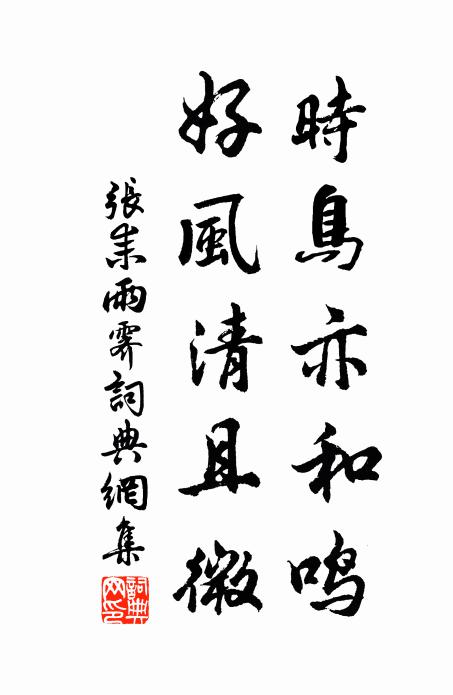 時鳥亦和鳴
好風清且微
張耒雨霽詞典網集
詞典
网印